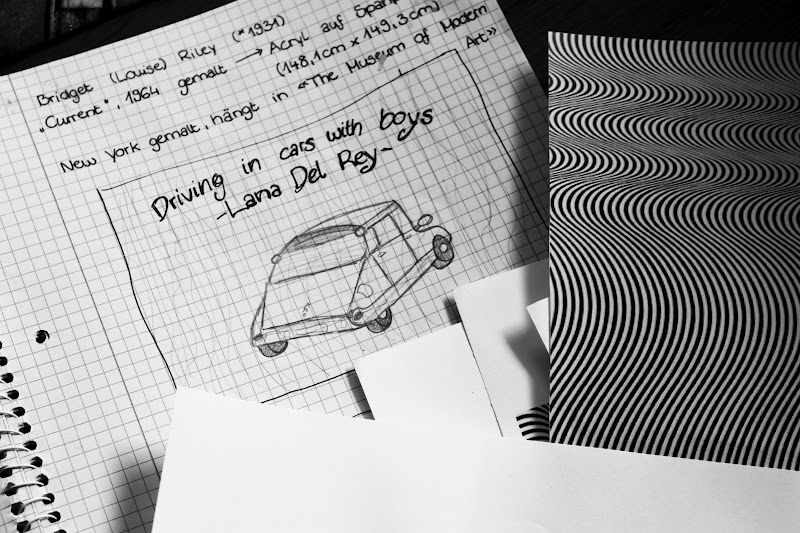 Bridget (Louise) Riley (*1931)
„Current", 1964 gemalt → Acryl auf Span
(148,1cm x 149,3cm)
New York gemalt, hängt in «The Museum of Modern
Art»
Driving in cars with boys
-Lana Del Rey-